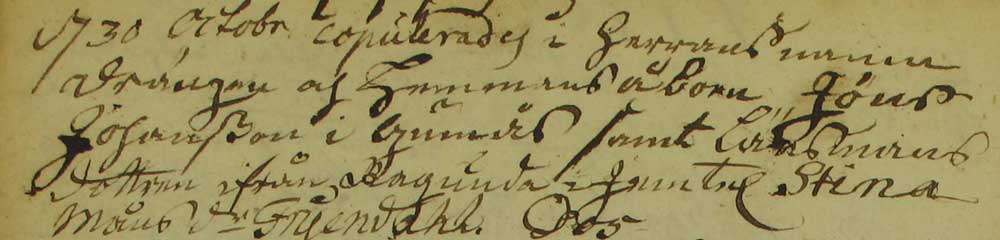 1730 Octobr. copulerades i Herrans namn
drängen och Hemmans åboen Jöns
Johansson i samt Länsmans
dottren ifrån Ragunda i Jemtel Stina
Måns dr Fryendahl.